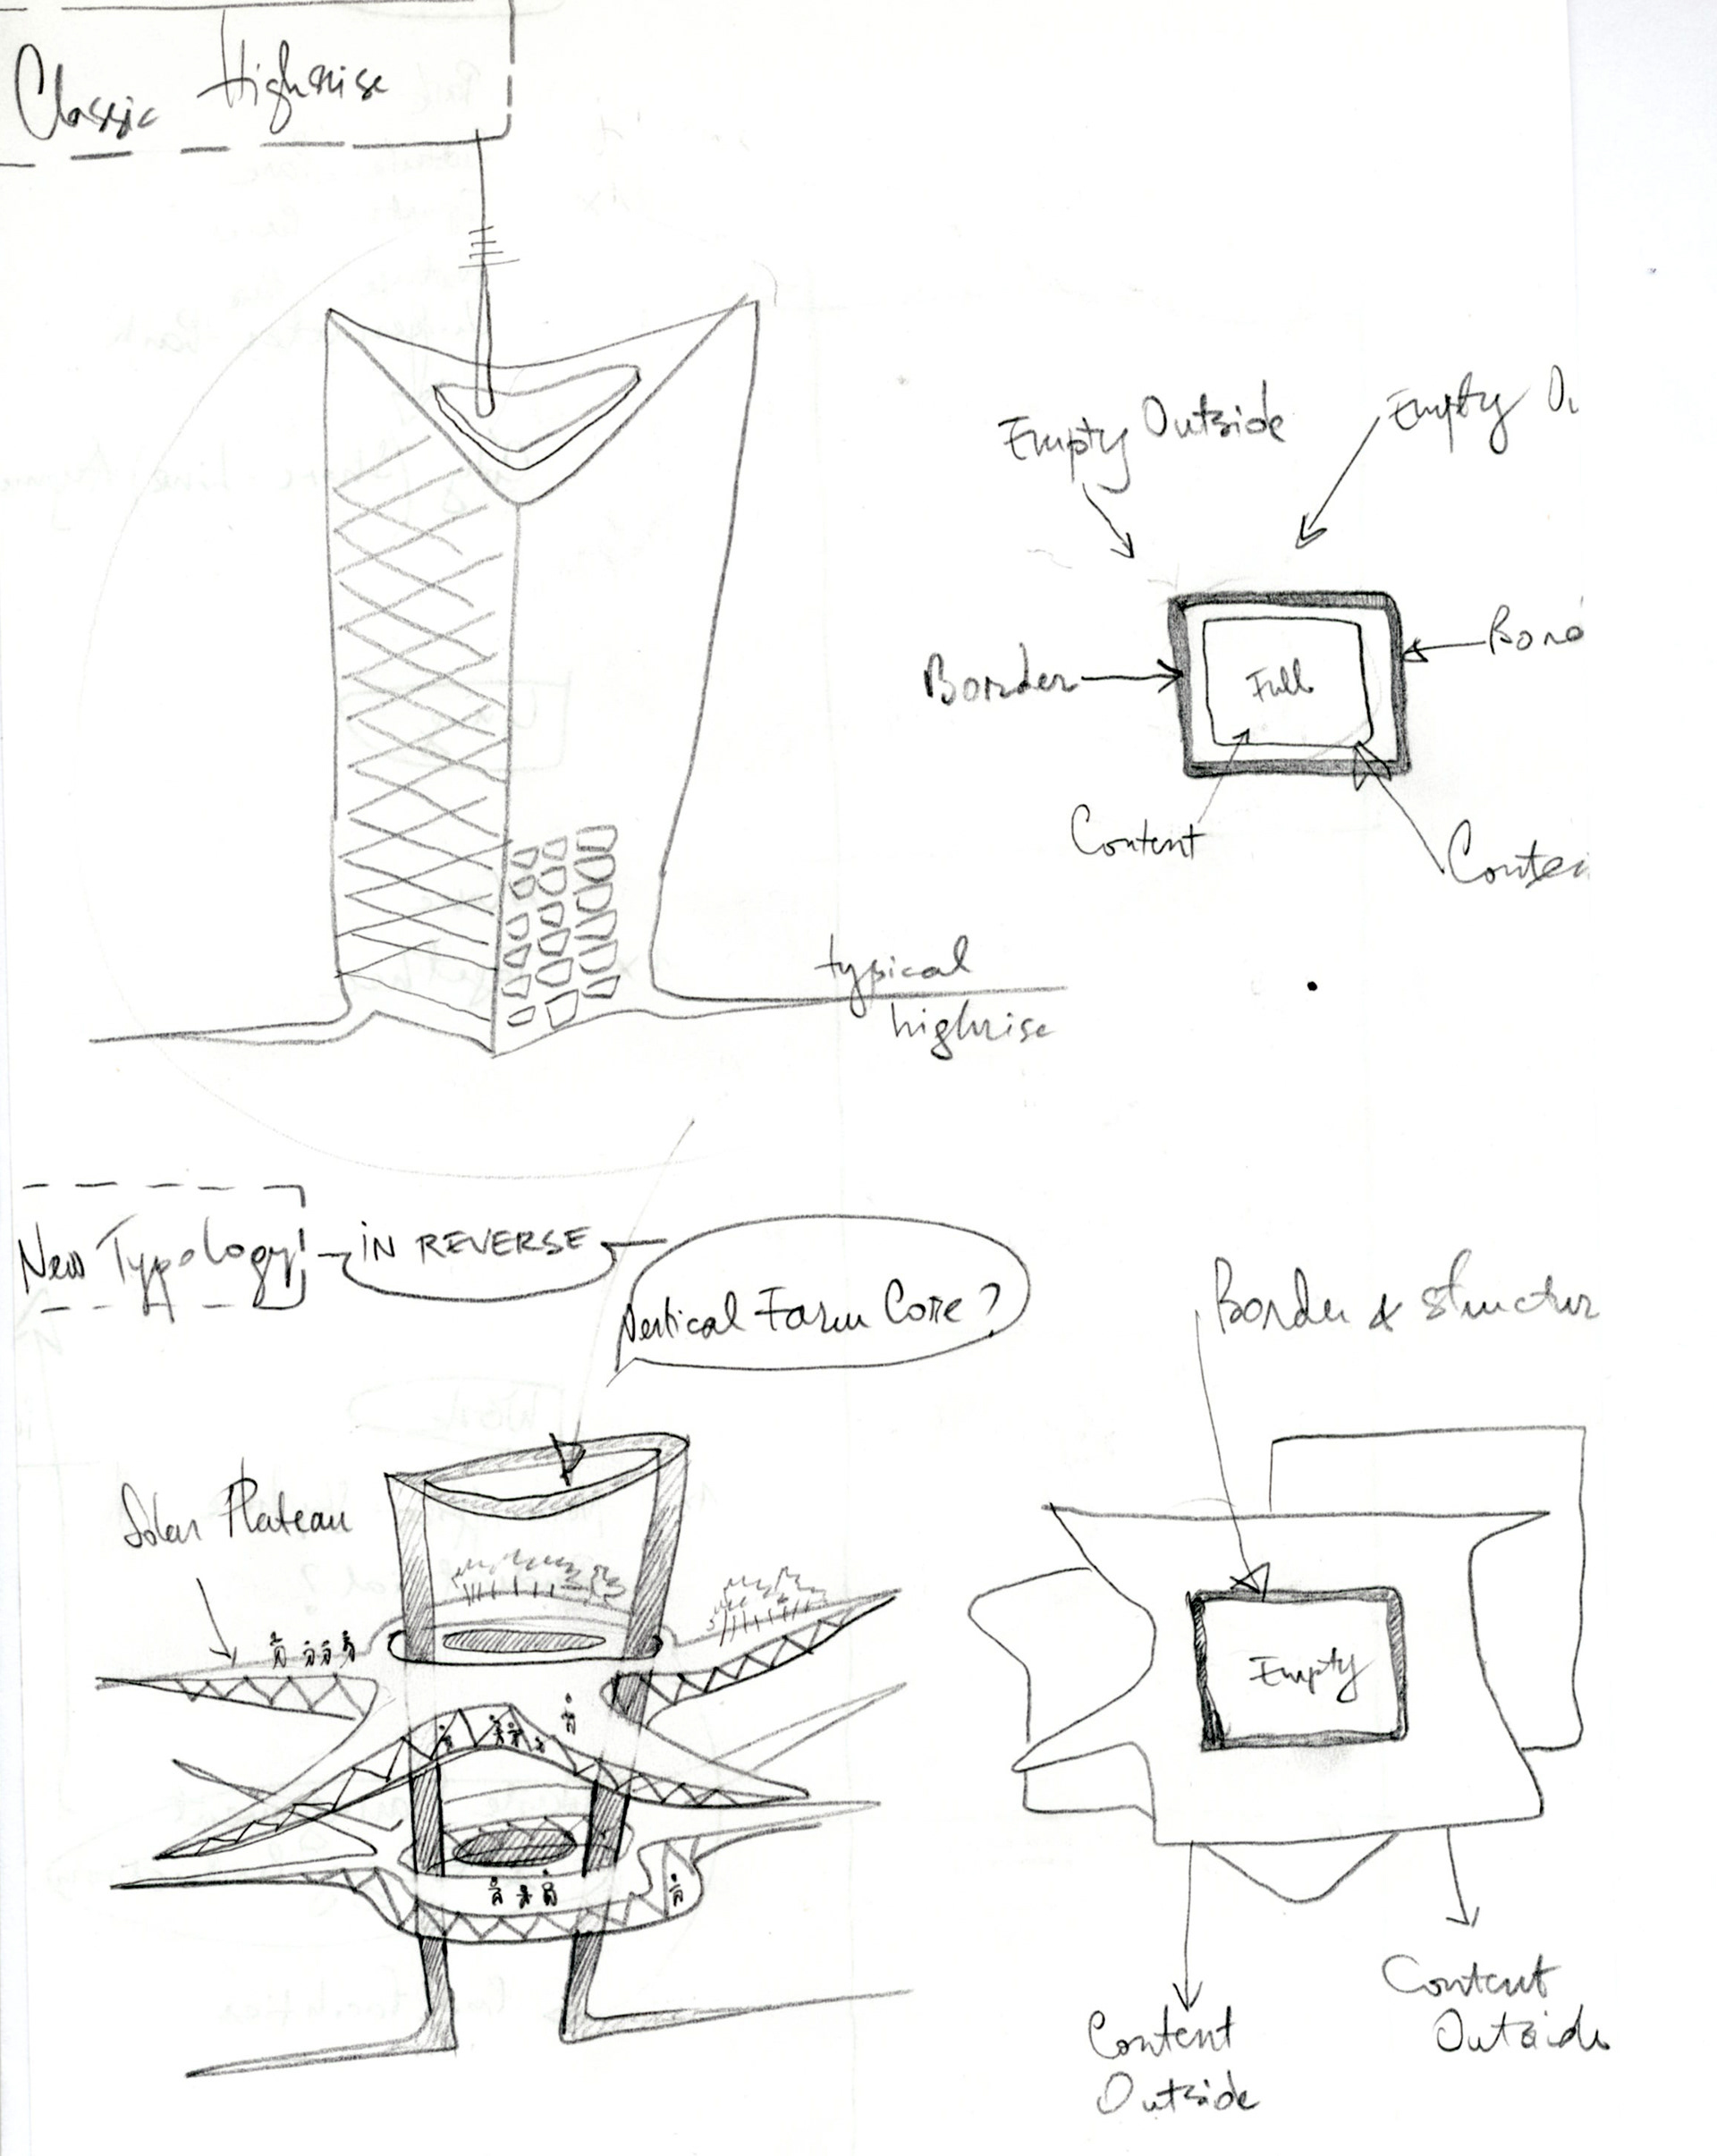 Classic Highrise
Empty Outside
Empty O
Border
Bord
Full
Content
Conten
typical
highrise
New Typology
IN REVERSE
Vertical Farm Core?
Border & structur
Solar Plateau
Empty
Content
Outside
Content
Outside